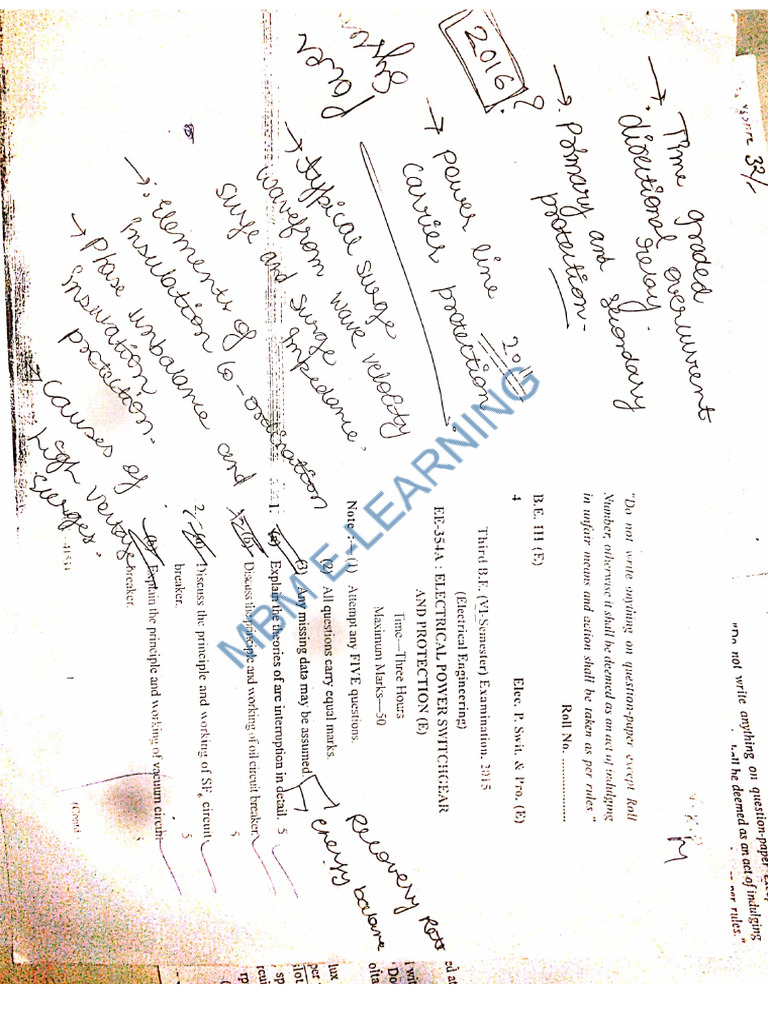 "Do not write anything on question-paper except Roll
Number, otherwise it shall be deemed as an act of indulging
in unfair means and action shall be taken as per rules."
Roll No. ................
B.E. III (E)
4 Elec. P. Swit. & Pro. (E)
Third B.E. (VI-Semester) Examination, 2015
(Electrical Engineering)
EE-354A : ELECTRICAL POWER SWITCHGEAR
AND PROTECTION (E)
Time—Three Hours
Maximum Marks—50
Note :— (1) Attempt any FIVE questions.
(2) All questions carry equal marks.
(3) Any missing data may be assumed.
1. (a) Explain the theories of arc interruption in detail. 5
(b) Discuss the principle and working of oil circuit breaker. 5
2. (a) Discuss the principle and working of SF6 circuit
breaker. 5
(b) Explain the principle and working of vacuum circuit
breaker. 5
41531 1 (Contd.
→ Recovery Rate
→ energy balance
→ Time graded
overcurrent
directional relay.
→ Primary and
secondary
protection-
2016 ?
→ Power line
carrier protection
2011
Power
→ typical surge
wavefrom wave velocity
surge and surge
impedance.
→ Elements of
insulation co-ordination
→ Phase unbalance and
insulation
protection-
→ causes of
high voltage
surges.
32/-
"Do not write anything on question-paper
be deemed as an act of indulging
per rules."
MBM E-LEARNING